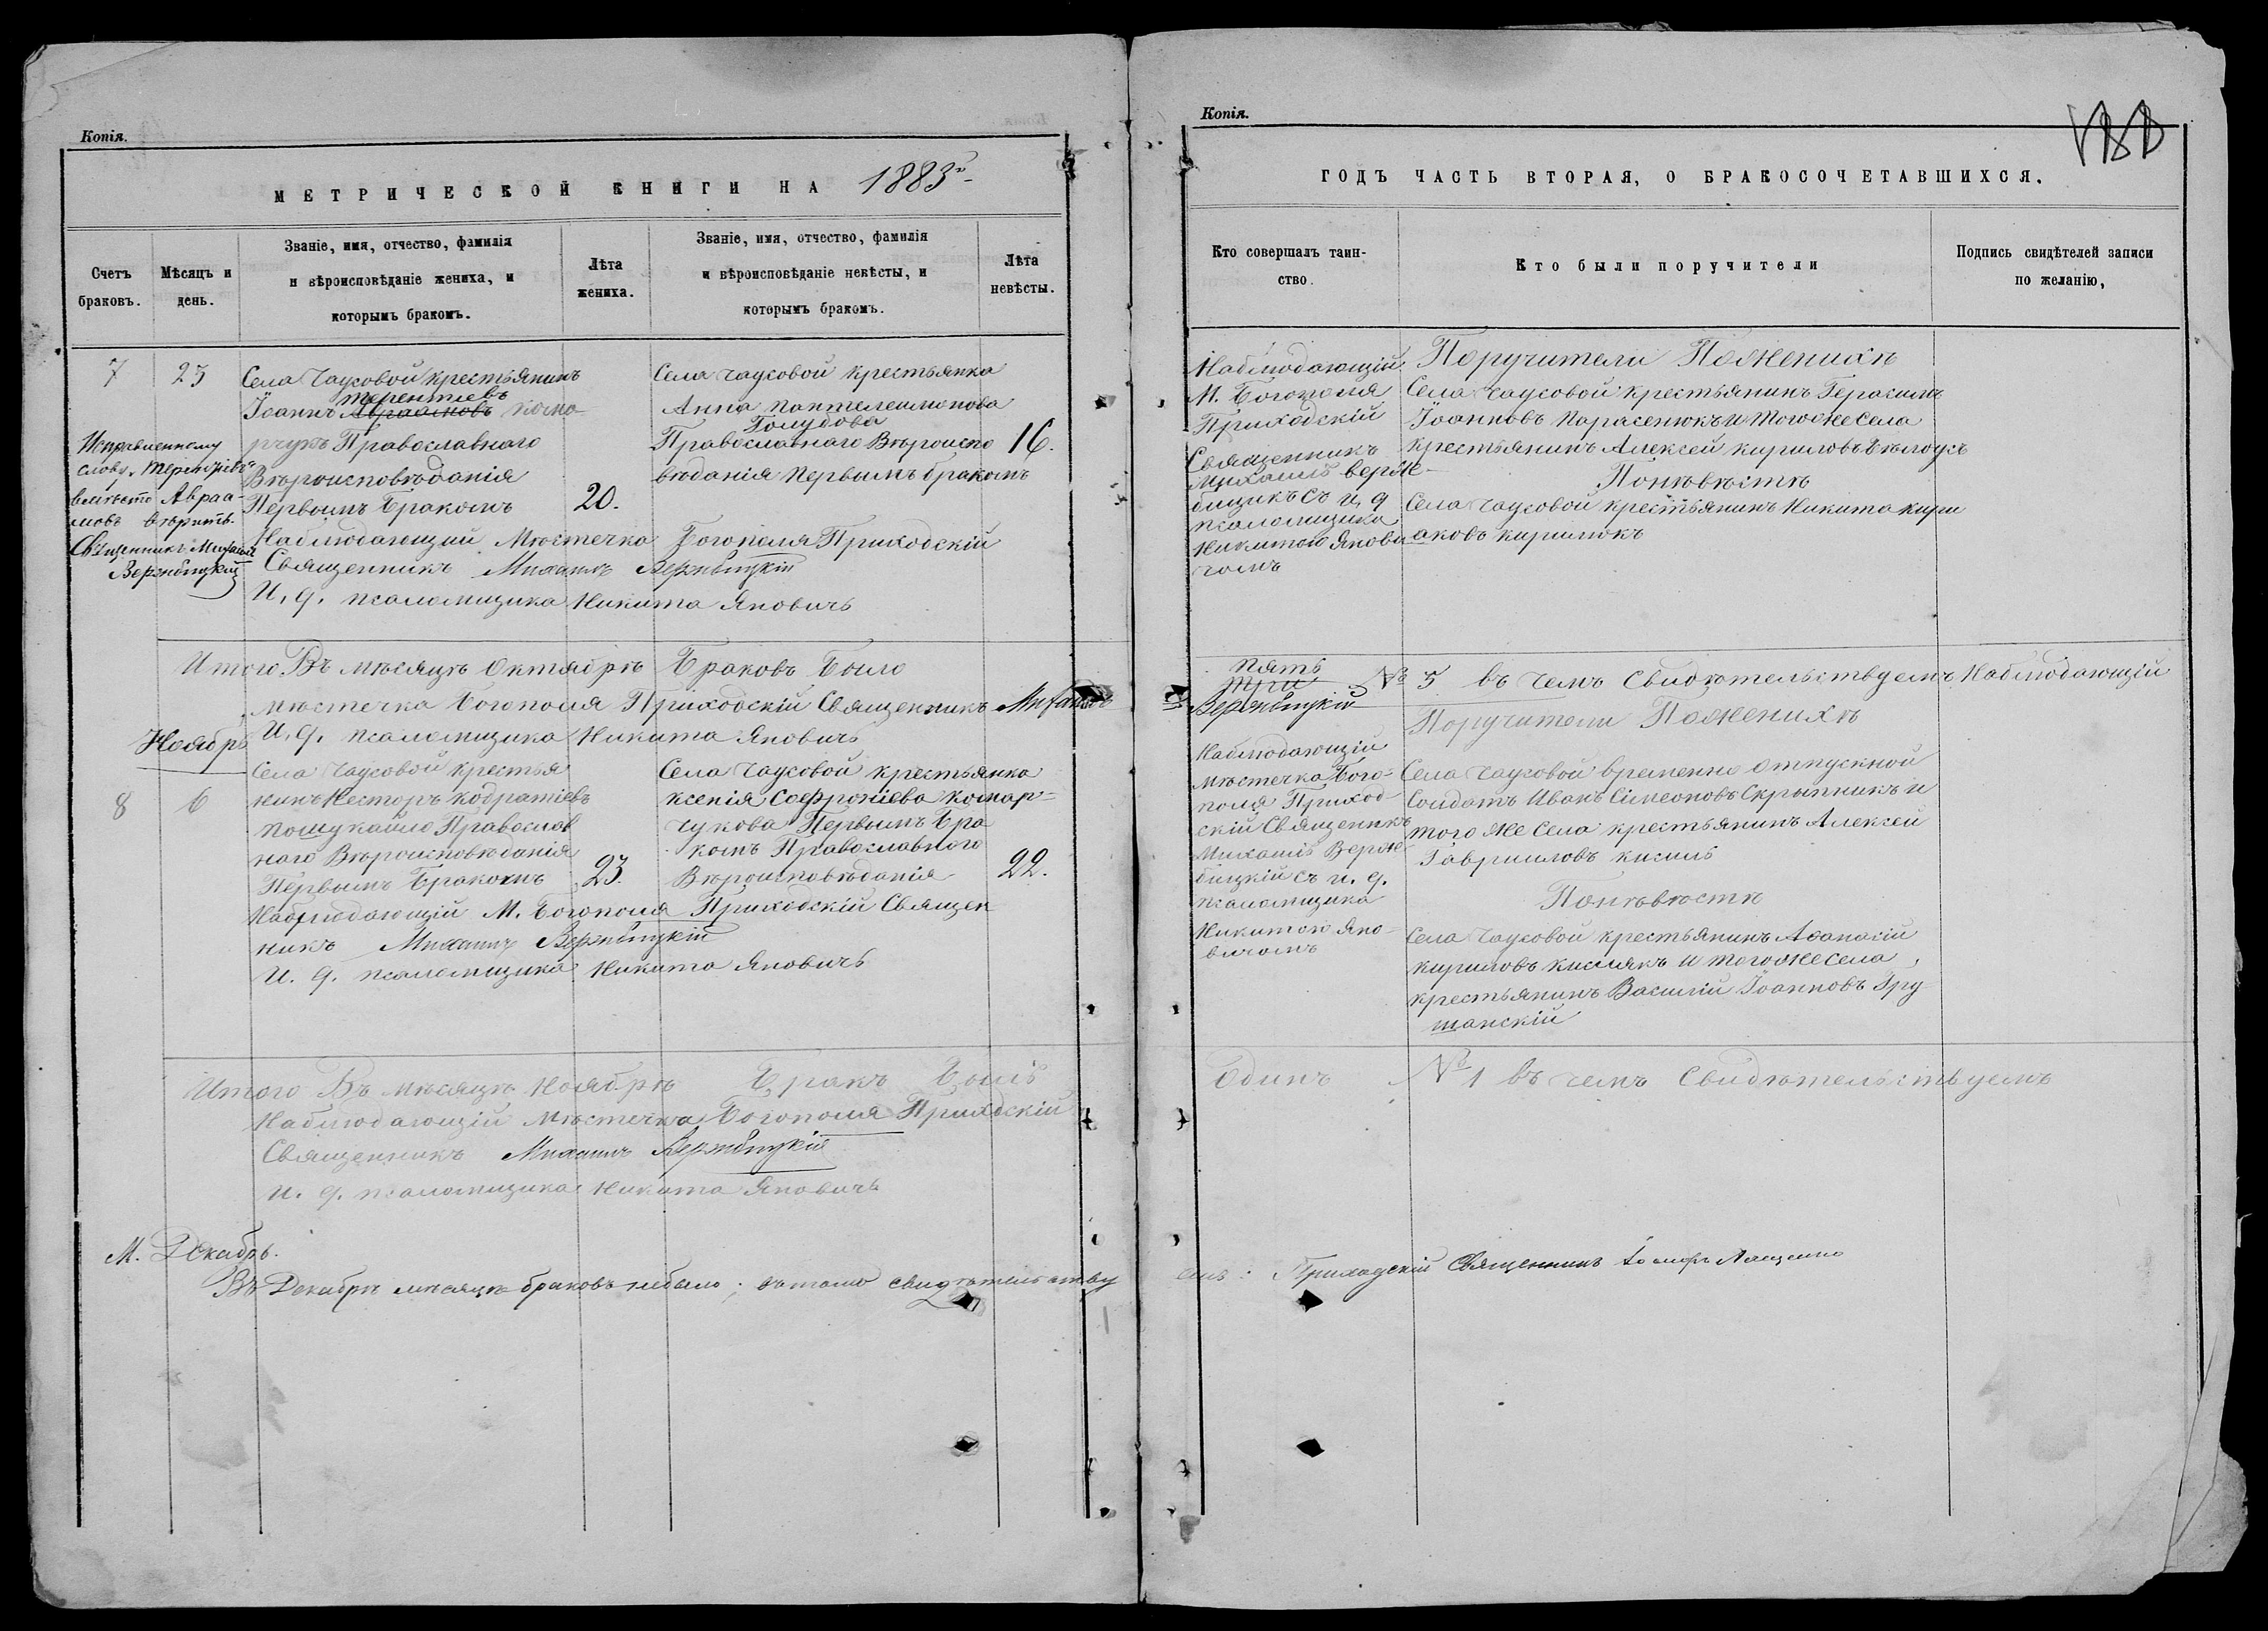 Копія.
МЕТРИЧЕСКОЙ КНИГИ НА 1883й
Счетъ браковъ.
Мѣсяцъ и день.
Званіе, имя, отчество, фамилія
и вѣроисповѣданіе жениха, и
которымъ бракомъ.
Лѣта жениха.
Званіе, имя, отчество, фамилія
и вѣроисповѣданіе невѣсты, и
которымъ бракомъ.
Лѣта невѣсты.
7
23
Села Чаусовой крестьянинъ
терентіевъ
Іоаннъ Авраамовъ кома-
рчукъ Православнаго
Вѣроисповѣданія
Первымъ Бракомъ
20.
Села Чаусовой крестьянка
Анна пантелеимонова
Голубова
Православнаго Вѣроиспо
вѣданія первымъ бракомъ
16.
Исправленному
слову "Терентіевъ"
вмѣсто Авраа-
мовъ вѣрить.
Священникъ Михаилъ
Вержбицкій
Наблюдающий Мѣстечка Богополя Приходскій
Священникъ Михаилъ Вержбицкій
И. д. псаломщика Никита Яновичъ
Итого Въ мѣсяцѣ Октябрѣ Браковъ Было
мѣстечка Богополя Приходскій Священникъ Михаилъ
И. д. псаломщика Никита Яновичъ
Ноябрь
8
6
Села Чаусовой крестья
нинъ Несторъ кодратіевъ
пошукайло Православ
наго Вѣроисповѣданія
Первымъ Бракомъ
23.
Села Чаусовой крестьянка
ксенія Софроніева комар-
чукова Первымъ Бра
комъ Православнаго
Вѣроисповѣданія
22.
Наблюдающій М. Богополя Приходскій Священ
никъ Михаилъ Вержбицкій
И. д. псаломщика Никита Яновичъ
Итого Въ мѣсяцѣ Ноябрѣ Бракъ Былъ
Наблюдающій мѣстечка Богополя Прихдскій
Священникъ Михаилъ Вержбицкій
и. д. псаломщика Никита Яновичъ
М. Декабрь.
Въ Декабрѣ мѣсяцѣ браковъ небыло; въ томъ свидѣтельству
Копія.
ГОДЪ ЧАСТЬ ВТОРАЯ, О БРАКОСОЧЕТАВШИХСЯ.
Кто совершалъ таин-
ство.
Кто были поручители
Подпись свидѣтелей записи
по желанію,
Наблюдающій
М. Богополя
Приходскій
Священникъ
Михаилъ верж-
бицкъ съ и. д
псаломщика
Никитою Янови
чомъ
Поручители Поженихѣ
Села Чаусовой крестьянинъ Герасимъ
Іоанновъ Парасенюкъ и того же Села
крестьянинъ Алексей кириловъ
Поневѣстѣ
Села Чаусовой крестьянинъ Никита кири
аковъ кирилюкъ
пять
три № 5 въ чемъ Свидѣтельствуемъ Наблюдающій
Вержбицкій
Наблюдающій
мѣстечка Бого-
поля Приход-
скій Священикъ
Михаилъ Верж-
бицкій съ и. д.
псаломщика
Никитою Яно-
вичомъ
Поручители Поженихѣ
Села Чаусовой временно отпускной
Солдатъ Иванъ Сімеоновъ Скрыпникъ и
того же Села крестьянинъ Алексей
Гавриловъ
Поневѣстѣ
Села Чаусовой крестьянинъ Аѳанасій
кириловъ кислякъ и того же Села,
крестьянинъ Василій Іоанновъ Гру
шанскій
Одинъ № 1 въ чемъ Свидѣтельствуемъ
емъ: Приходскій Священникъ Іосифъ